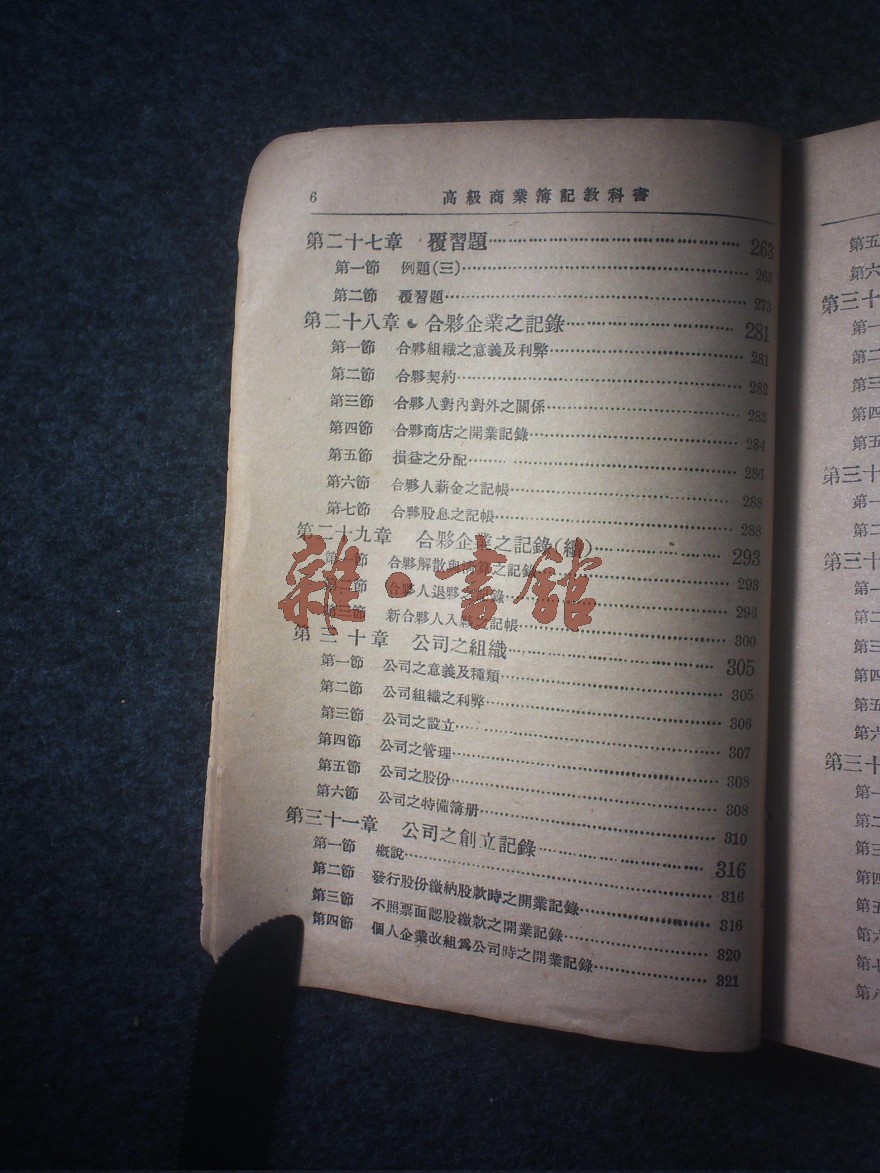 6 高級商業簿記教科書
第二十七章 覆習題 263
第一節 例題(三) 263
第二節 覆習題 273
第二十八章 合夥企業之記錄 281
第一節 合夥組織之意義及利弊 281
第二節 合夥契約 282
第三節 合夥人對內對外之關係 283
第四節 合夥商店之開業記錄 284
第五節 損益之分配 286
第六節 合夥人薪金之記帳 288
第七節 合夥股息之記帳 288
第二十九章 合夥企業之記錄(續) 293
第一節 合夥解散與清算之記錄 293
第二節 合夥人退夥 錄 293
第三節 新合夥人入夥 記帳 300
第三十章 公司之組織 305
第一節 公司之意義及種類 305
第二節 公司組織之利弊 306
第三節 公司之設立 307
第四節 公司之管理 308
第五節 公司之股份 308
第六節 公司之特備簿册 310
第三十一章 公司之創立記錄 316
第一節 概說 316
第二節 發行股份繳納股款時之開業記錄 316
第三節 不照票面認股繳款之開業記錄 320
第四節 個人企業改組爲公司時之開業記錄 321
雜·書館
第五
第六
第三十
第一
第二
第三
第四
第五
第三十
第一
第二
第三十
第一
第二
第三
第四
第五
第六
第三十
第一
第二
第三
第四
第五
第六
第七
第八